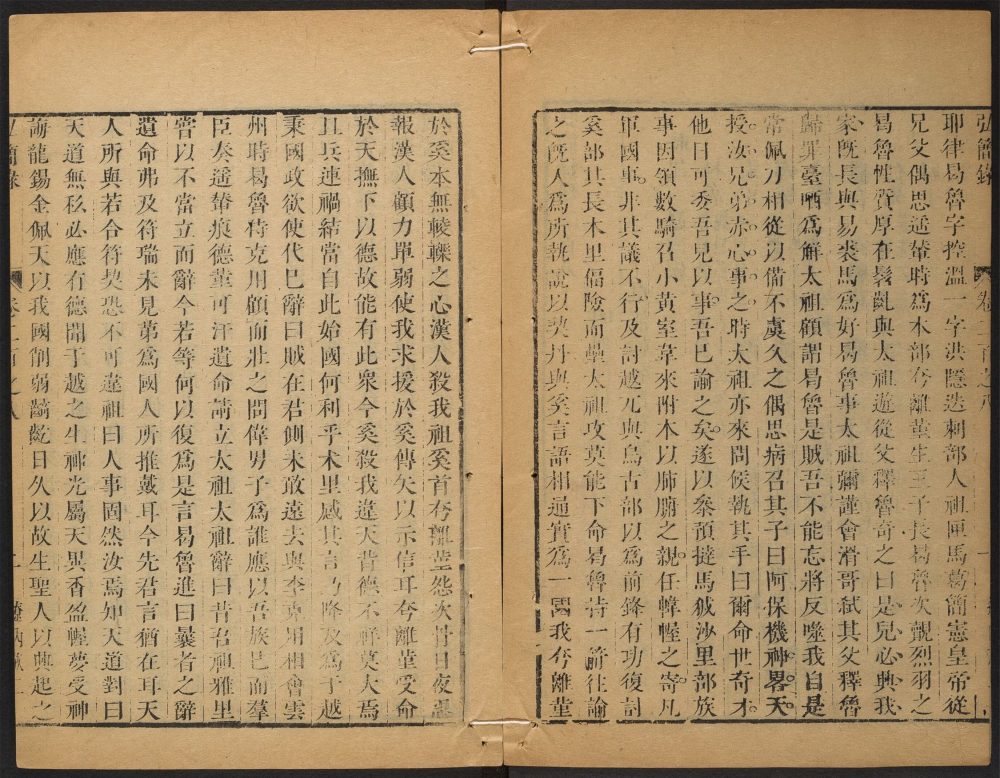 弘簡錄
卷二百之八
耶律曷魯字控溫一字洪隱迭剌部人祖匣馬葛簡憲皇帝從
兄父偶思遥輦時爲本部夷離堇生五子長曷魯次覿烈羽之
曷魯性資厚在髫齔與太祖遊從父釋魯奇之曰是兒必興我
家旣長與易裘馬爲好曷魯事太祖彌謹會滑哥弑其父釋魯
歸罪臺哂爲解太祖顧謂曷魯是賊吾不能忘將反噬我自是
常佩刀相從以備不虞久之偶思病召其子曰阿保機神畧天
授汝兄弟赤心事之時太祖亦來問候執其手曰爾命世奇才
他日可委吾兒以事吾已諭之矣遂以叅預撻馬狘沙里部族
事因領數騎召小黃室韋來附木以肺腑之親任幃幄之寄凡
軍國事非其議不行及討越兀與烏古部以爲前鋒有功復討
奚部其長木里偪險而壘太祖攻莫能下命曷魯持一箭往諭
之旣入爲所執說以契丹與奚言語相通實爲一國我夷離堇
於奚本無輘轢之心漢人殺我祖奚首夷離堇怨次骨日夜思
報漢人顧力單弱使我求援於奚傳矢以示信耳夷離堇受命
於天撫下以德故能有此衆今奚殺我違天背德不祥莫大焉
且兵連禍結當自此始國何利乎术里感其言乃降及爲于越
秉國政欲使代已辭曰賊在君側未敢遠去與李克用相會雲
州時曷魯特克用顧而壯之問偉男子爲誰應以吾族已而羣
臣奏遥輦痕德堇可汗遺命請立太祖太祖辭曰昔吾祖雅里
嘗以不當立而辭今若等何以復爲是言曷魯進曰曩者之辭
遺命弗及符瑞未見第爲國人所推戴耳今先君言猶在耳天
人所與若合符契恐不可違祖曰人事固然汝焉知天道對曰
天道無私必應有德聞于越之生神光屬天異香盈幄夢受神
誨龍錫金佩天以我國削弱齮齕日久以故生聖人以興起之